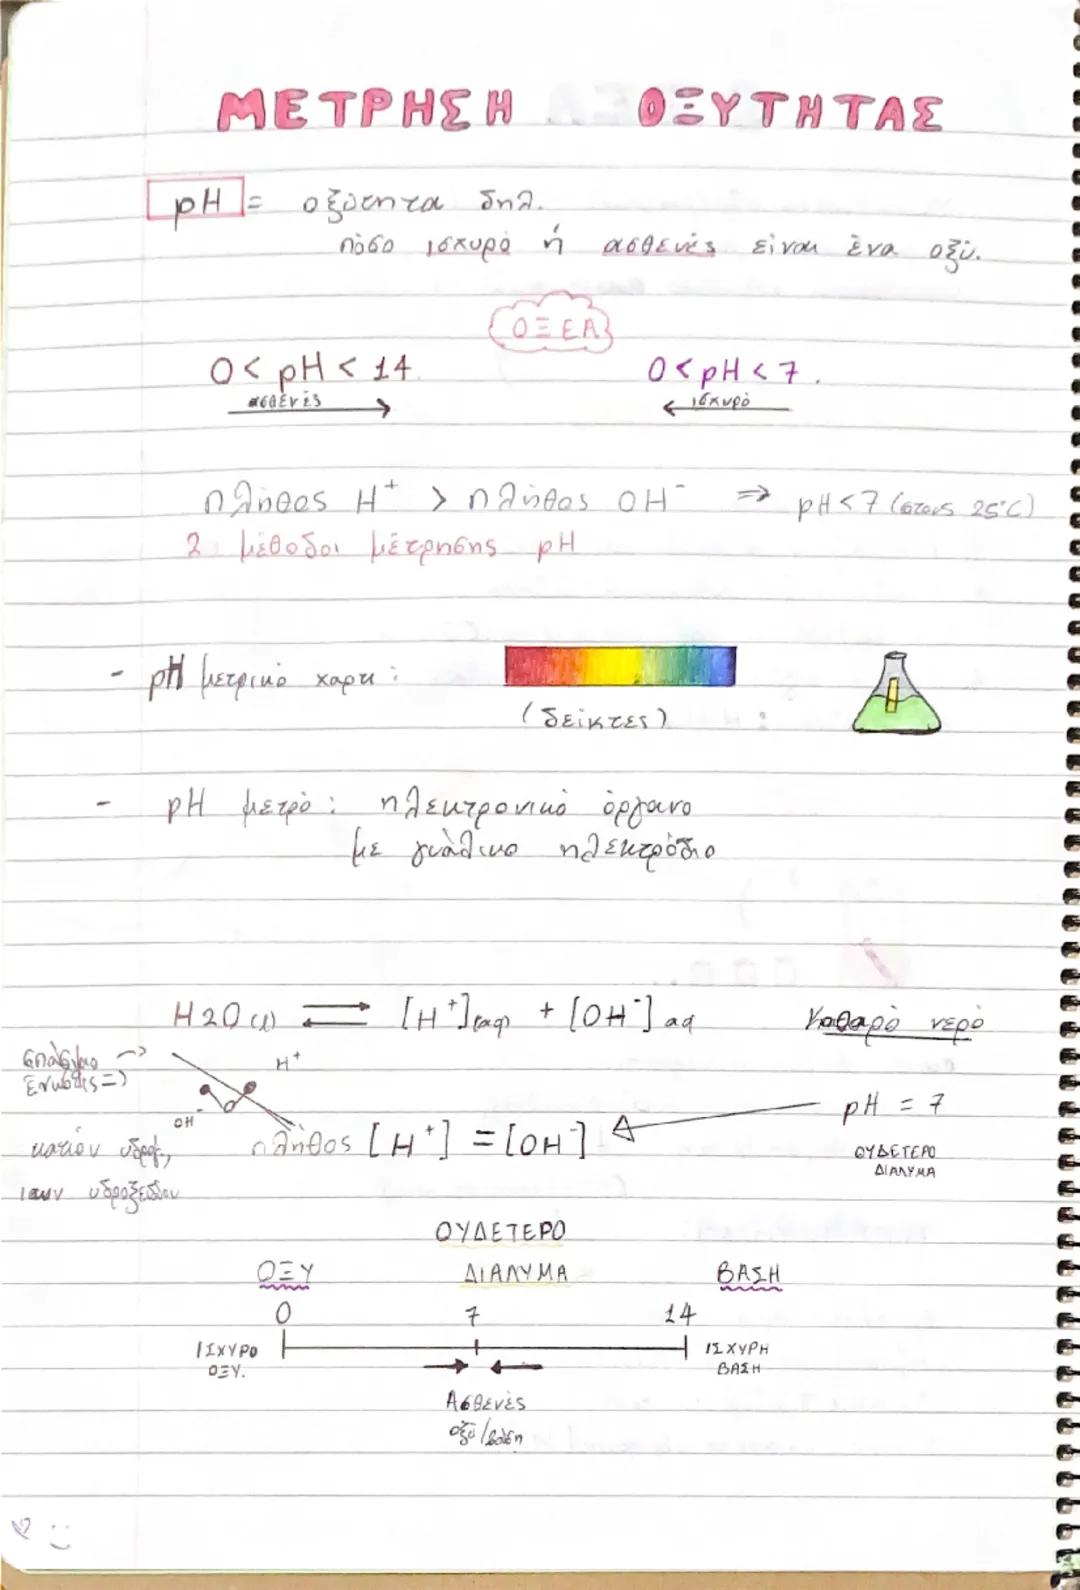 ΜΕΤΡΗΣΗ ΟΞΥΤΗΤΑΣ
pH = οξύτητα δηλ.
πόσο ισχυρό ή ασθενές είναι ένα οξύ.
ΟΞΕΑ
0 < pH < 14 0 < pH < 7.
ασθενές ισχυρό
πλήθος H⁺ > πλήθος OH⁻ ⇒ pH < 7 (στους 25°C)
2 μέθοδοι μέτρησης pH
- pH μετρικό χαρτι :
(δείκτες) :
- pH μετρό : ηλεκτρονικό όργανο
με γυάλινο ηλεκτρόδιο
H2O (l) ⇌ [H⁺](aq) + [OH⁻] aq Καθαρό νερό
σπάσιμο →
ένωσης ⇒ H⁺
OH⁻
pH = 7
κατιόν υδρογ, πλήθος [H⁺] = [OH⁻]
ΟΥΔΕΤΕΡΟ
ΔΙΑΛΥΜΑ
ιων υδροξειδίου
ΟΥΔΕΤΕΡΟ
ΟΞΥ ΔΙΑΛΥΜΑ ΒΑΣΗ
0 7 14
ΙΣΧΥΡΟ ΙΣΧΥΡΗ
ΟΞΥ. ΒΑΣΗ
Ασθενές
οξύ/βάση